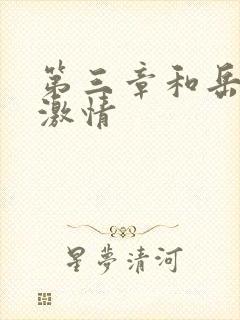 第三章和岳
激情
星夢清河